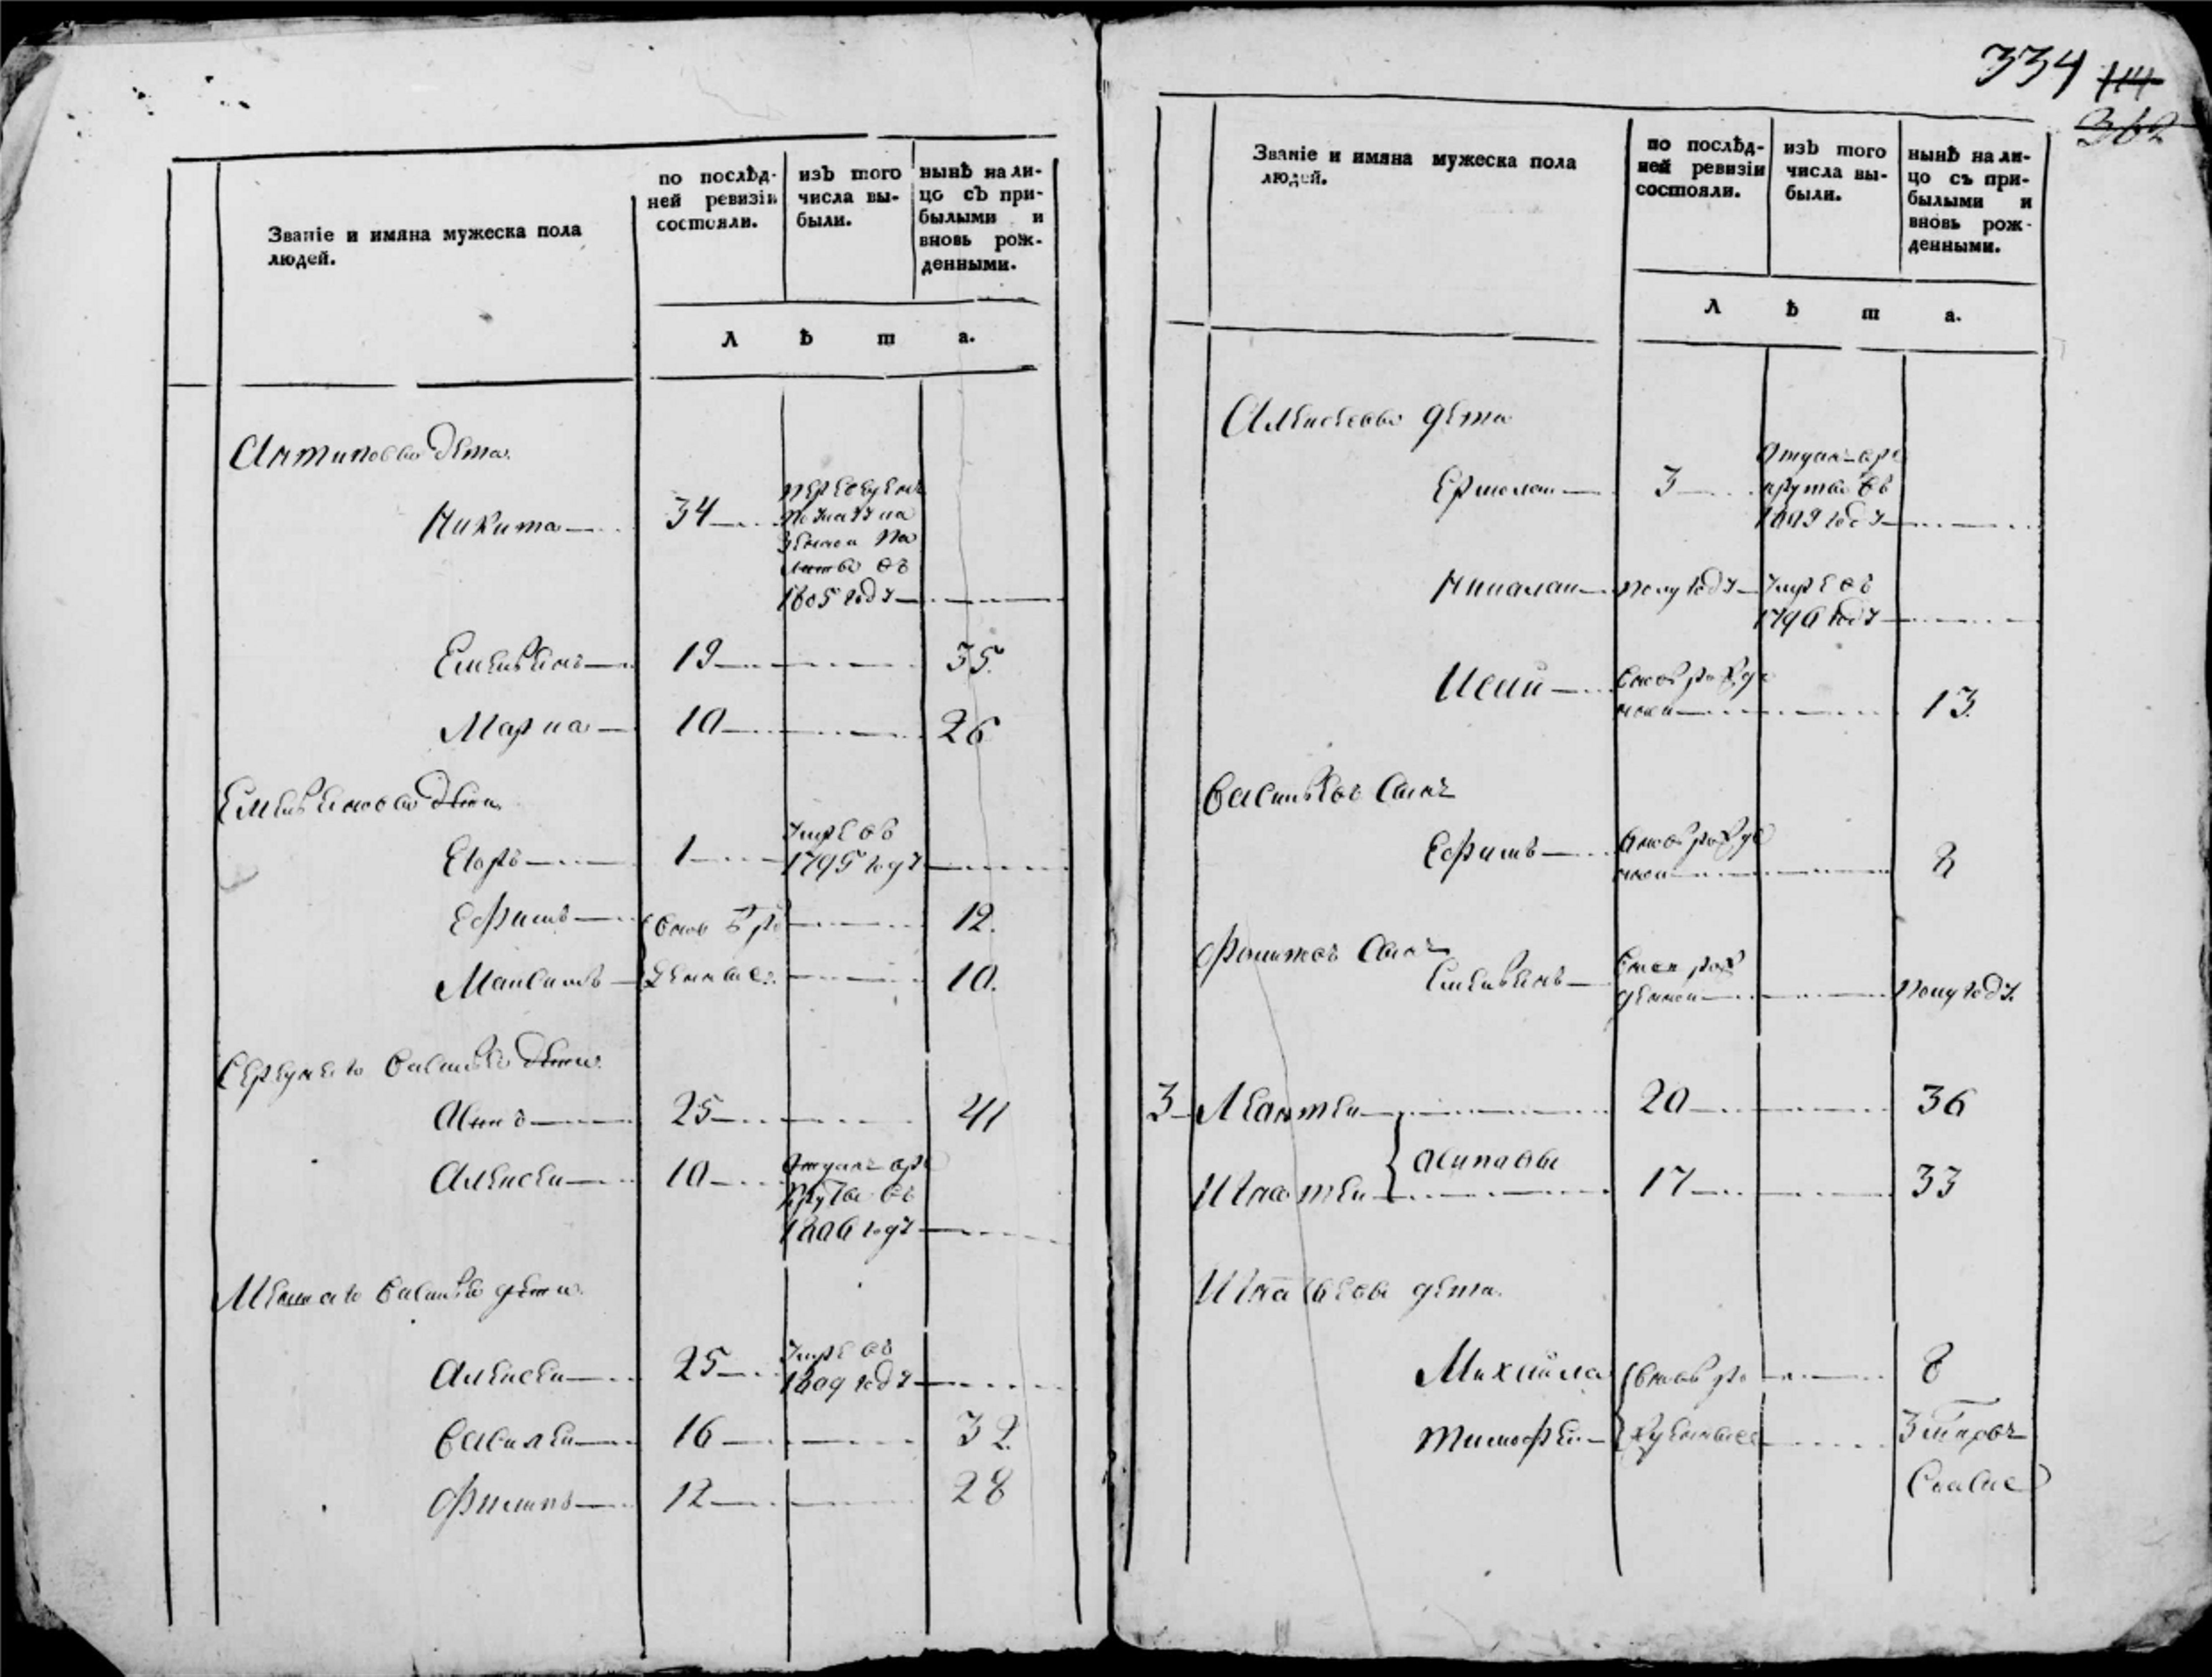 Званіе и имяна мужеска пола
людей.
по послѣд-
ней ревизіи
состояли.
изъ того
числа вы-
были.
нынѣ на ли-
цо съ при-
былыми и
вновь рож-
денными.
Л ѣ т а.
Антиповы дети
Никита 34
переведенъ
въ
1805 году
Емельянъ 19 35.
Марка 10 26
Емельяновы дети
Егоръ 1 умре въ
1795 году
Ефимъ вновь ро 12.
Максимъ жденные 10.
Середнего Василья дети
Осипъ 25 41
Алексей 10 отданъ в ре
круты въ
1806 году
Меншаго Василья дети
Алексей 25 умре въ
1809 году
Василей 16 32.
Филипъ 12 28
334
114
362
Званіе и имяна мужеска пола
людей.
по послѣд-
ней ревизіи
состояли.
изъ того
числа вы-
были.
нынѣ на ли-
цо съ при-
былыми и
вновь рож-
денными.
Л ѣ т а.
Алексеевы дети
Ермолай 3
отданъ в ре
круты въ
1809 году
Николай полугоду умре въ
1796 году
Исай вновь рожде
ной 13.
Васильевъ сынъ
Ефимъ вновь рожде
ной 8
Филиповъ сынъ
Емельянъ вновь рож
денной полугоду.
3 Леонтей 20 36
Осиповы
Игнатей 17 33
Игнатьевы дети
Михайла вновь ро 8
Тимофей жденные 3